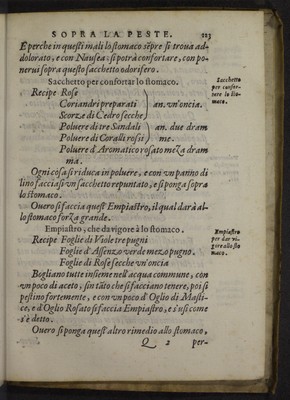 SOPRA LA PESTE. 123
E perche in questi mali lo stomaco sẽpre si troua ad-
dolorato, e con Nausea: si potrà confortare, con po-
nerui sopra questo sacchetto odorifero.
Sacchetto per confortar lo stomaco.
Sacchetto
per confor-
tare lo sto-
maco.
Recipe Rose
Coriandri preparati
Scorze di Cedro secche
an. vn'oncia.
Poluere di tre Sandali
Poluere di Coralli rossi
an. due dram
me.
Poluere d'Aromatico rosato meza dram
ma.
Ogni cosa si riduca in poluere, e con vn panno di
lino facciasi vn sacchetto repuntato, e si ponga sopra
lo stomaco.
Ouero si faccia quest'Empiastro, il qual darà al-
lo stomaco forza grande.
Empiastro, che da vigore à lo stomaco.
Empiastro
per dar vi-
gore allo sto
maco.
Recipe Foglie di Viole tre pugni
Foglie d'Assenzo verde mezo pugno.
Foglie di Rose secche vn'oncia
Bogliano tutte insieme nell'acqua commune, con
vn poco di aceto, sin tãto che si facciano tenere, poi si
pestino fortemente, e con vn poco d'Oglio di Masti-
ce, e d'Oglio Rosato si faccia Empiastro, e s'usi come
s'è detto.
Ouero si ponga quest'altro rimedio allo stomaco,
Q 2 per-